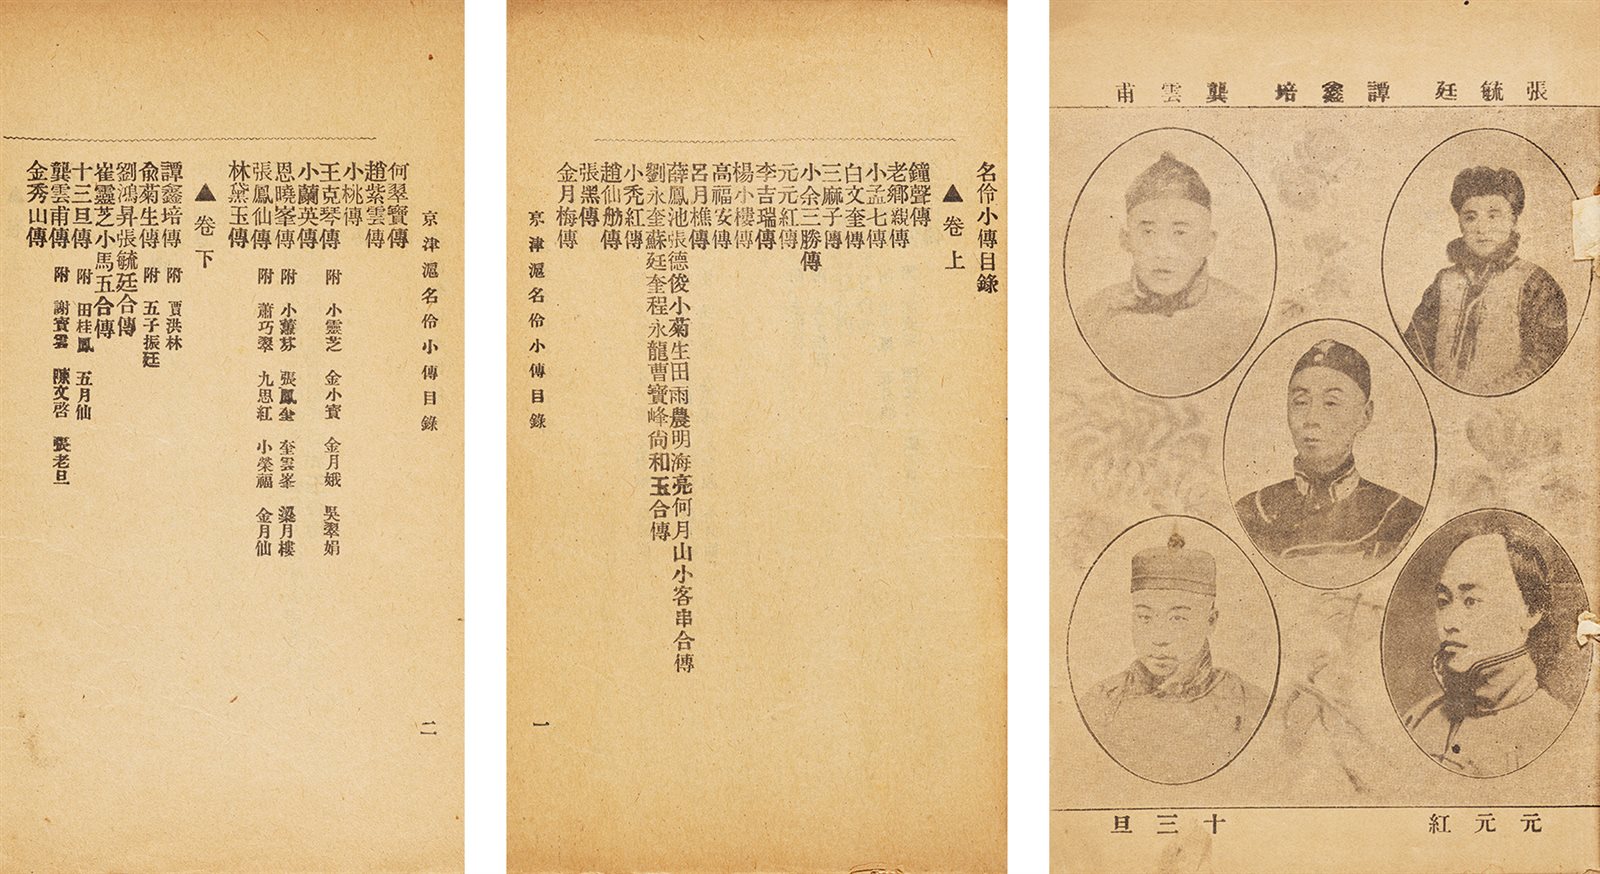 張毓廷 譚鑫培 龔雲甫
元元紅 十三旦
名伶小傳目錄
▲卷上
鐘聲傳
老鄉親傳
小孟七傳
白文奎傳
三麻子傳
小余三勝傳
元元紅傳
李吉瑞傳
楊小樓傳
高福安傳
呂月樵傳
薛鳳池張德俊小菊生田雨農明海亮何月山小客串合傳
劉永奎蘇廷奎程永龍曹寶峰尙和玉合傳
小禿紅傳
趙仙舫傳
張黑傳
金月梅傳
京津滬名伶小傳目錄 一
京津滬名伶小傳目錄 二
何翠寶傳
趙紫雲傳
小桃傳
王克琴傳 附 小靈芝 金小寶 金月娥 吳翠娟
小蘭英傳
恩曉峯傳 附 奎雲峯 梁月樓
張鳳仙傳 附 蕭巧翠 九思紅 小榮福 金月仙
林黛玉傳
▲卷下
譚鑫培傳 附 賈洪林
俞菊生傳 附 五子振廷
劉鴻昇張毓廷合傳
崔靈芝小馬五合傳
十三旦傳 附 田桂鳳 五月仙
龔雲甫傳 附 謝寶雲 陳文啓 張老旦
金秀山傳